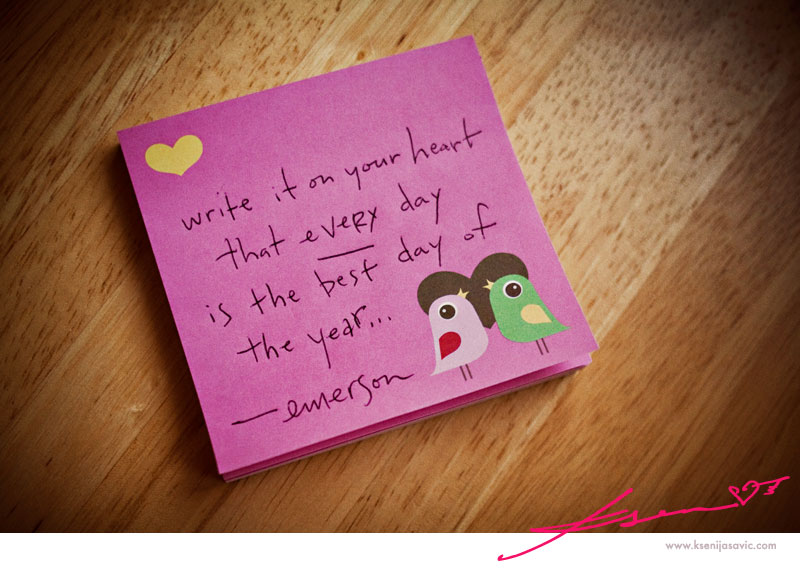 write it on your heart
that eVERY day
is the best day of
the year...
—emerson
Ksen
www.ksenijasavic.com